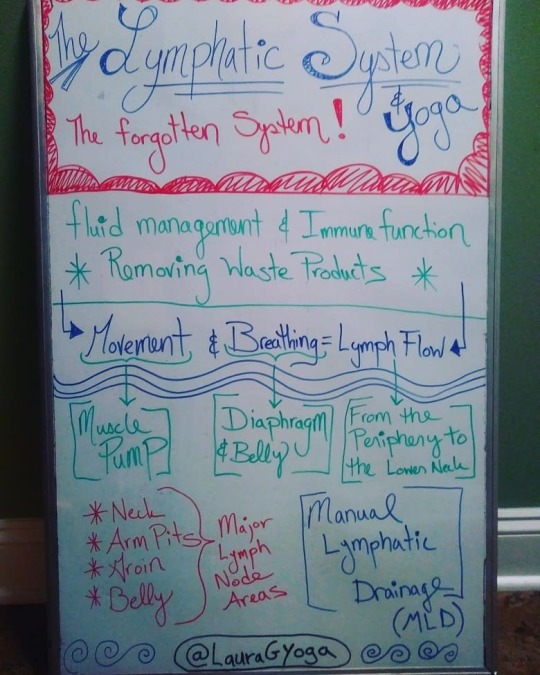 The Lymphatic System
& Yoga
The forgotten System!
fluid management & Immune function
* Removing Waste Products *
Movement & Breathing = Lymph Flow
Muscle
Pump
Diaphragm
& Belly
From the
Periphery to
the Lower Neck
* Neck
* Arm Pits
* Groin
* Belly
Major
Lymph
Node
Areas
Manual
Lymphatic
Drainage
(MLD)
@LauraGYoga